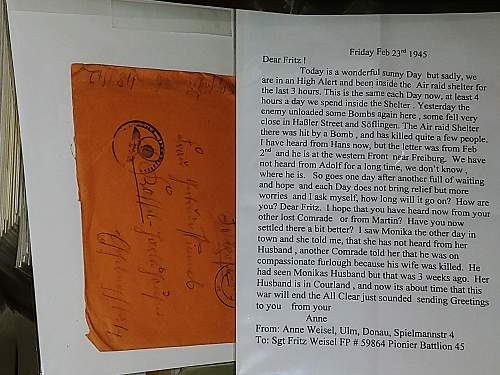 Friday Feb 23rd 1945
Dear Fritz !
Today is a wonderful sunny Day but sadly, we
are in an High Alert and been inside the Air raid shelter for
the last 3 hours. This is the same each Day now, at least 4
hours a day we spend inside the Shelter . Yesterday the
enemy unloaded some Bombs again here , some fell very
close in Haßler Street and Söflingen. The Air raid Shelter
there was hit by a Bomb , and has killed quite a few people.
I have heard from Hans now, but the letter was from Feb
2nd and he is at the western Front near Freiburg. We have
not heard from Adolf for a long time, we don't know ,
where he is. So goes one day after another full of waiting
and hope and each Day does not bring relief but more
worries and I ask myself, how long will it go on? How are
you? Dear Fritz. I hope that you have heard now from your
other lost Comrade or from Martin? Have you now
settled there a bit better? I saw Monika the other day in
town and she told me, that she has not heard from her
Husband , another Comrade told her that he was on
compassionate furlough because his wife was killed. He
had seen Monikas Husband but that was 3 weeks ago. Her
Husband is in Courland , and now its about time that this
war will end the All Clear just sounded sending Greetings
to you from your
Anne
From: Anne Weisel, Ulm, Donau, Spielmannstr 4
To: Sgt Fritz Weisel FP # 59864 Pionier Battlion 45